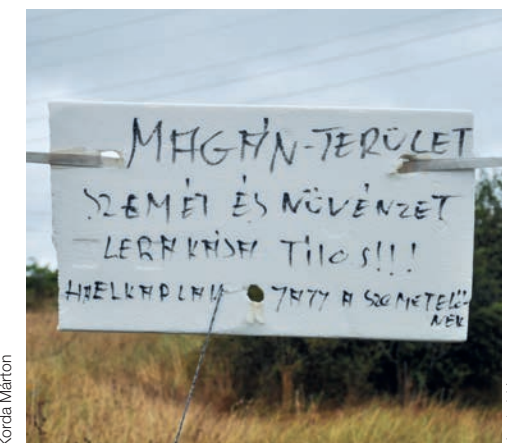 MAGÁN-TERÜLET
SZEMÉT ÉS NÖVÉNZET
LERAKÁSA TILOS!!!
HAELKAPLAK JAJJ A SZEMETELŐ-
NEK
Korda Márton